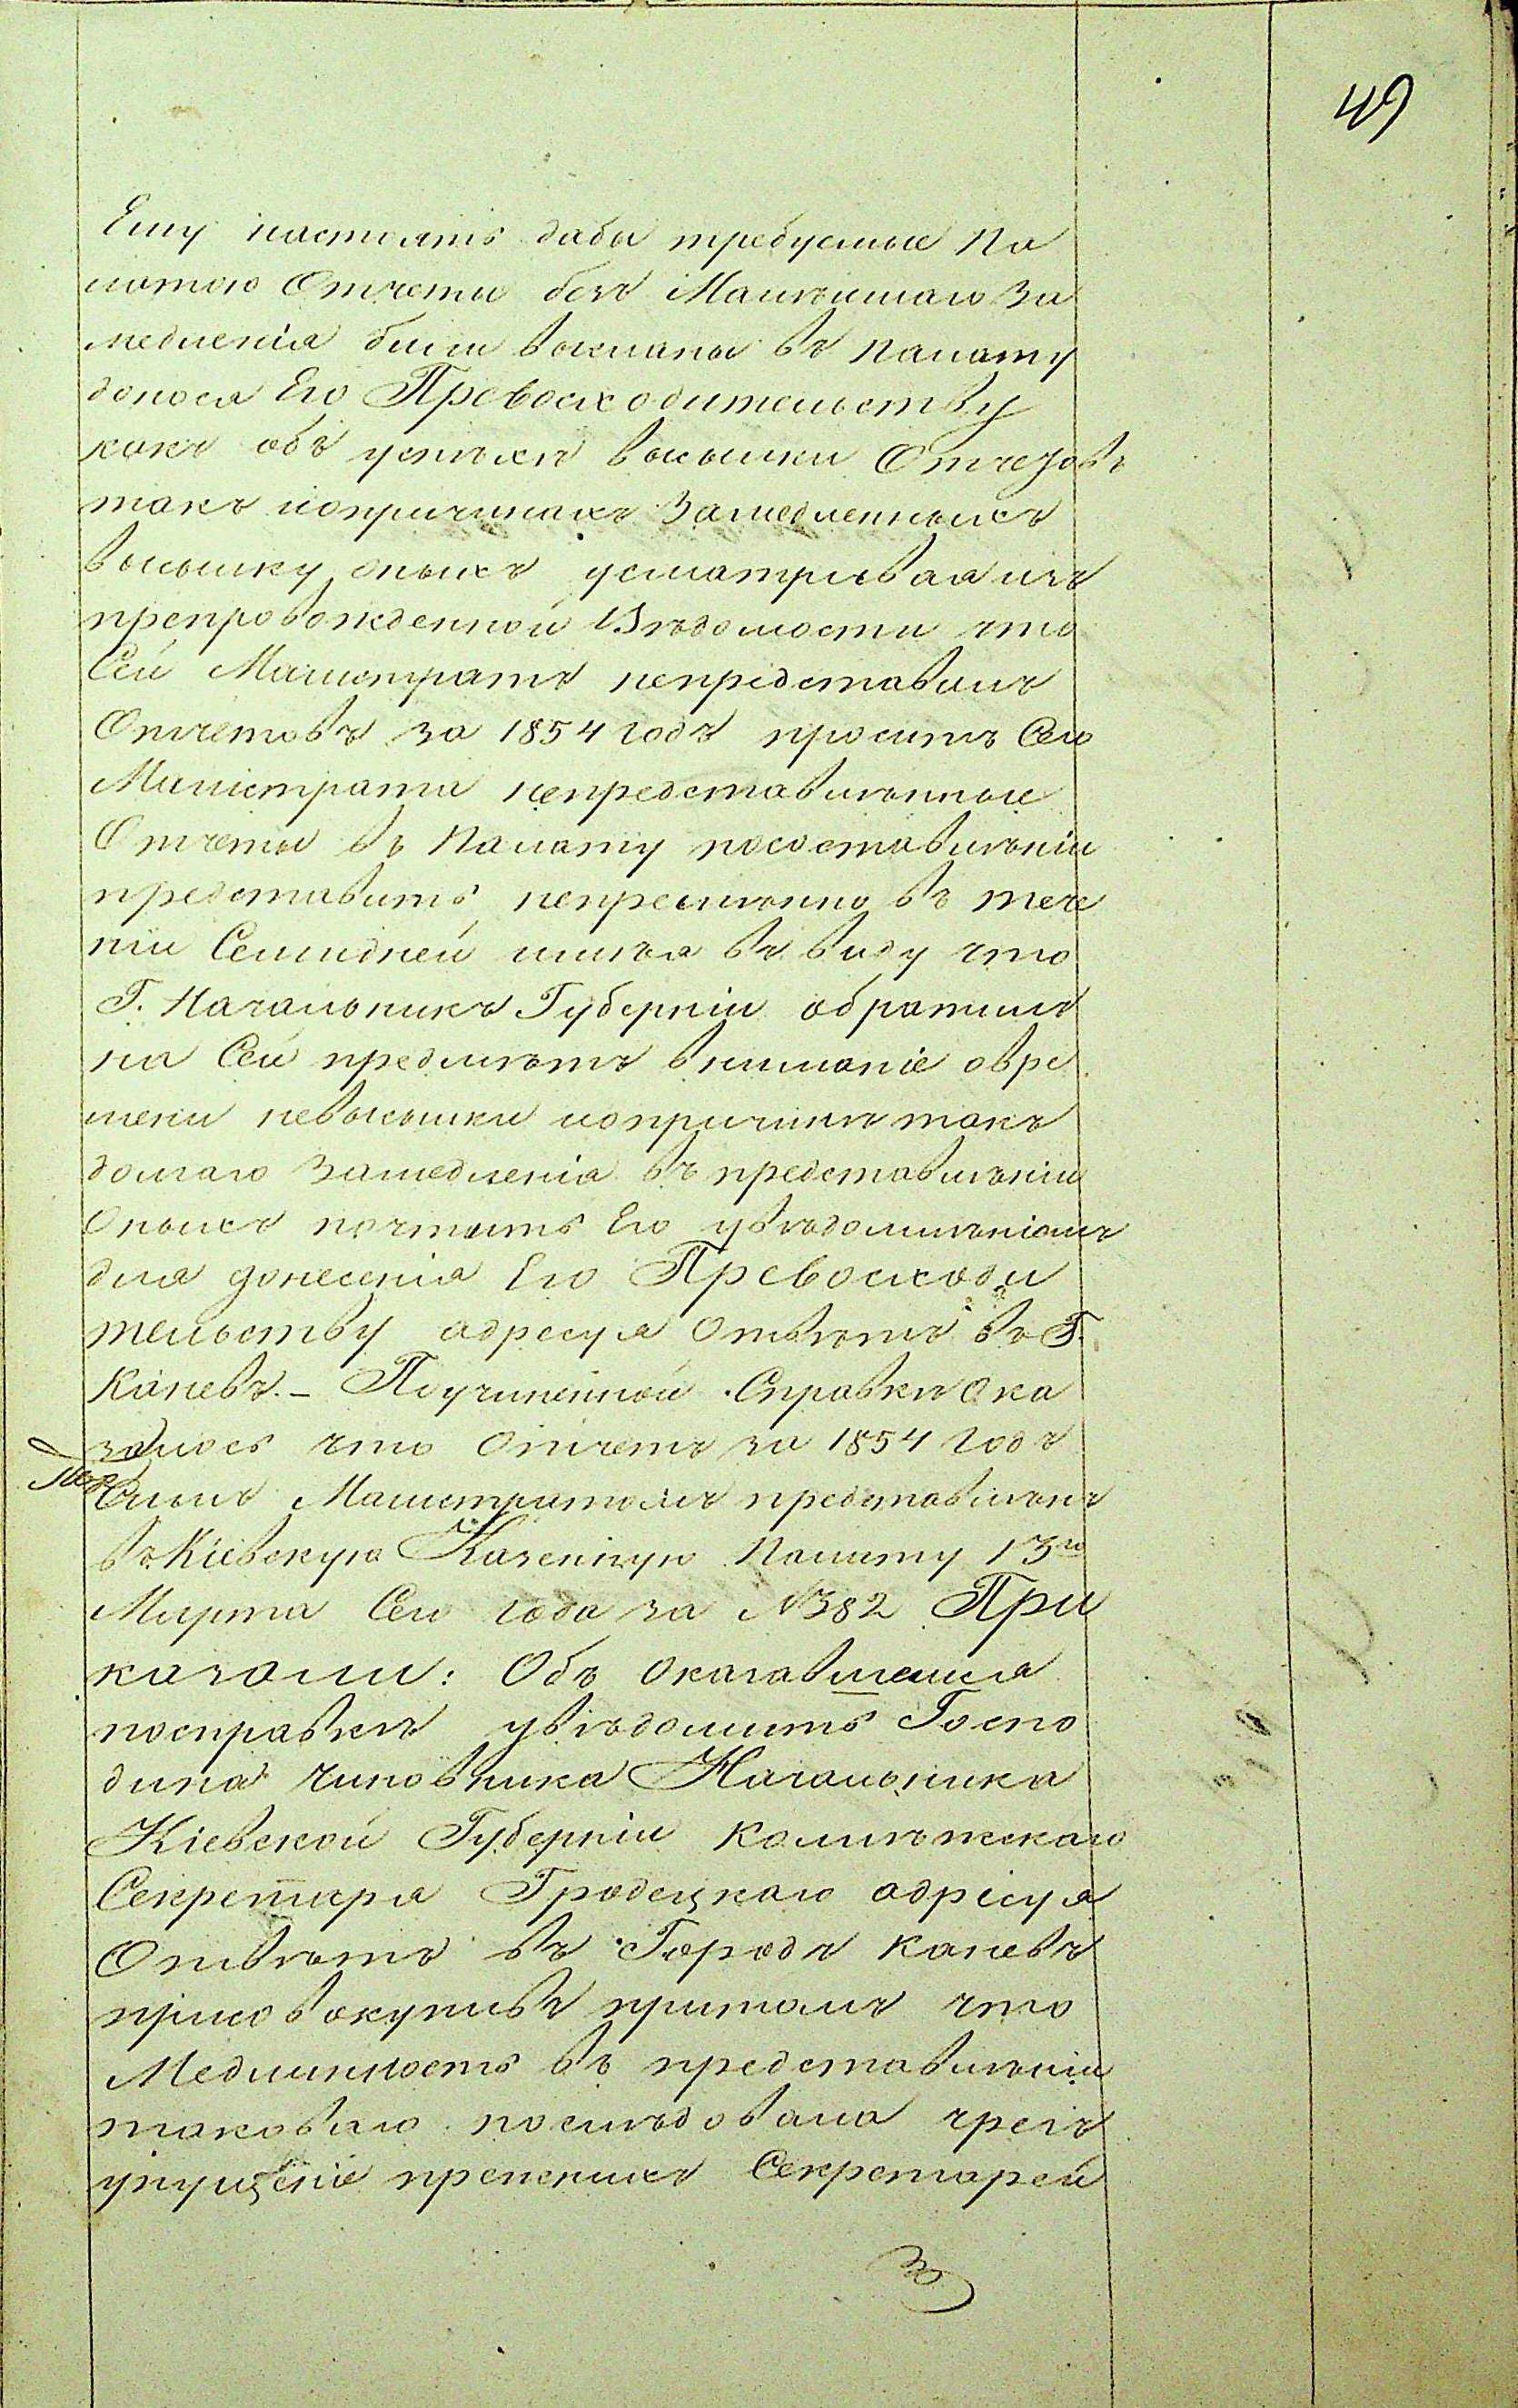 49
Ему настоять дабы требуемые Па
латою Отчеты безъ Малейшаго За
медленія были высланы въ Палату
донося Его Превосходительству
какъ объ успехе высылки Отчетовъ
такъ ипопричинахъ Замедленныхъ
высылку оныхъ усматривая изъ
препровожденной Ведомости что
Сей Магистратъ непредставилъ
Отчетовъ за 1854 годъ проситъ Сего
Магистрата непредставленные
Отчеты въ Палату посоставленіи
представить непременно въ тече
ніи Семидней имея въ виду что
Г. Начальникъ Губерніи обратилъ
на Сей предметъ вниманіе овре
мени невысылки ипопричине такъ
долгаго Замедленія въ представленіи
Оныхъ почтить Его уведомленіемъ
для донесенія Его Превосходи
тельству адресуя Ответъ въ Г.
Каневъ. – Поучиненной Справке Ока
залось что Отчетъ за 1854 годъ
Симъ Магистратомъ представленъ
въ Кіевскую Казенную Палату 13го
Марта Сего года за №382 При
казали: Объ Оказавшемся
посправке уведомить Госпо
дина Чиновника Начальника
Кіевской Губерніи Коллежскаго
Секретаря Гродецкаго адресуя
Ответъ въ Городъ Каневъ
присовокупивъ притомъ что
Медлинность въ представленіи
таковаго последовала чрезъ
упущеніе прежнихъ Секретарей